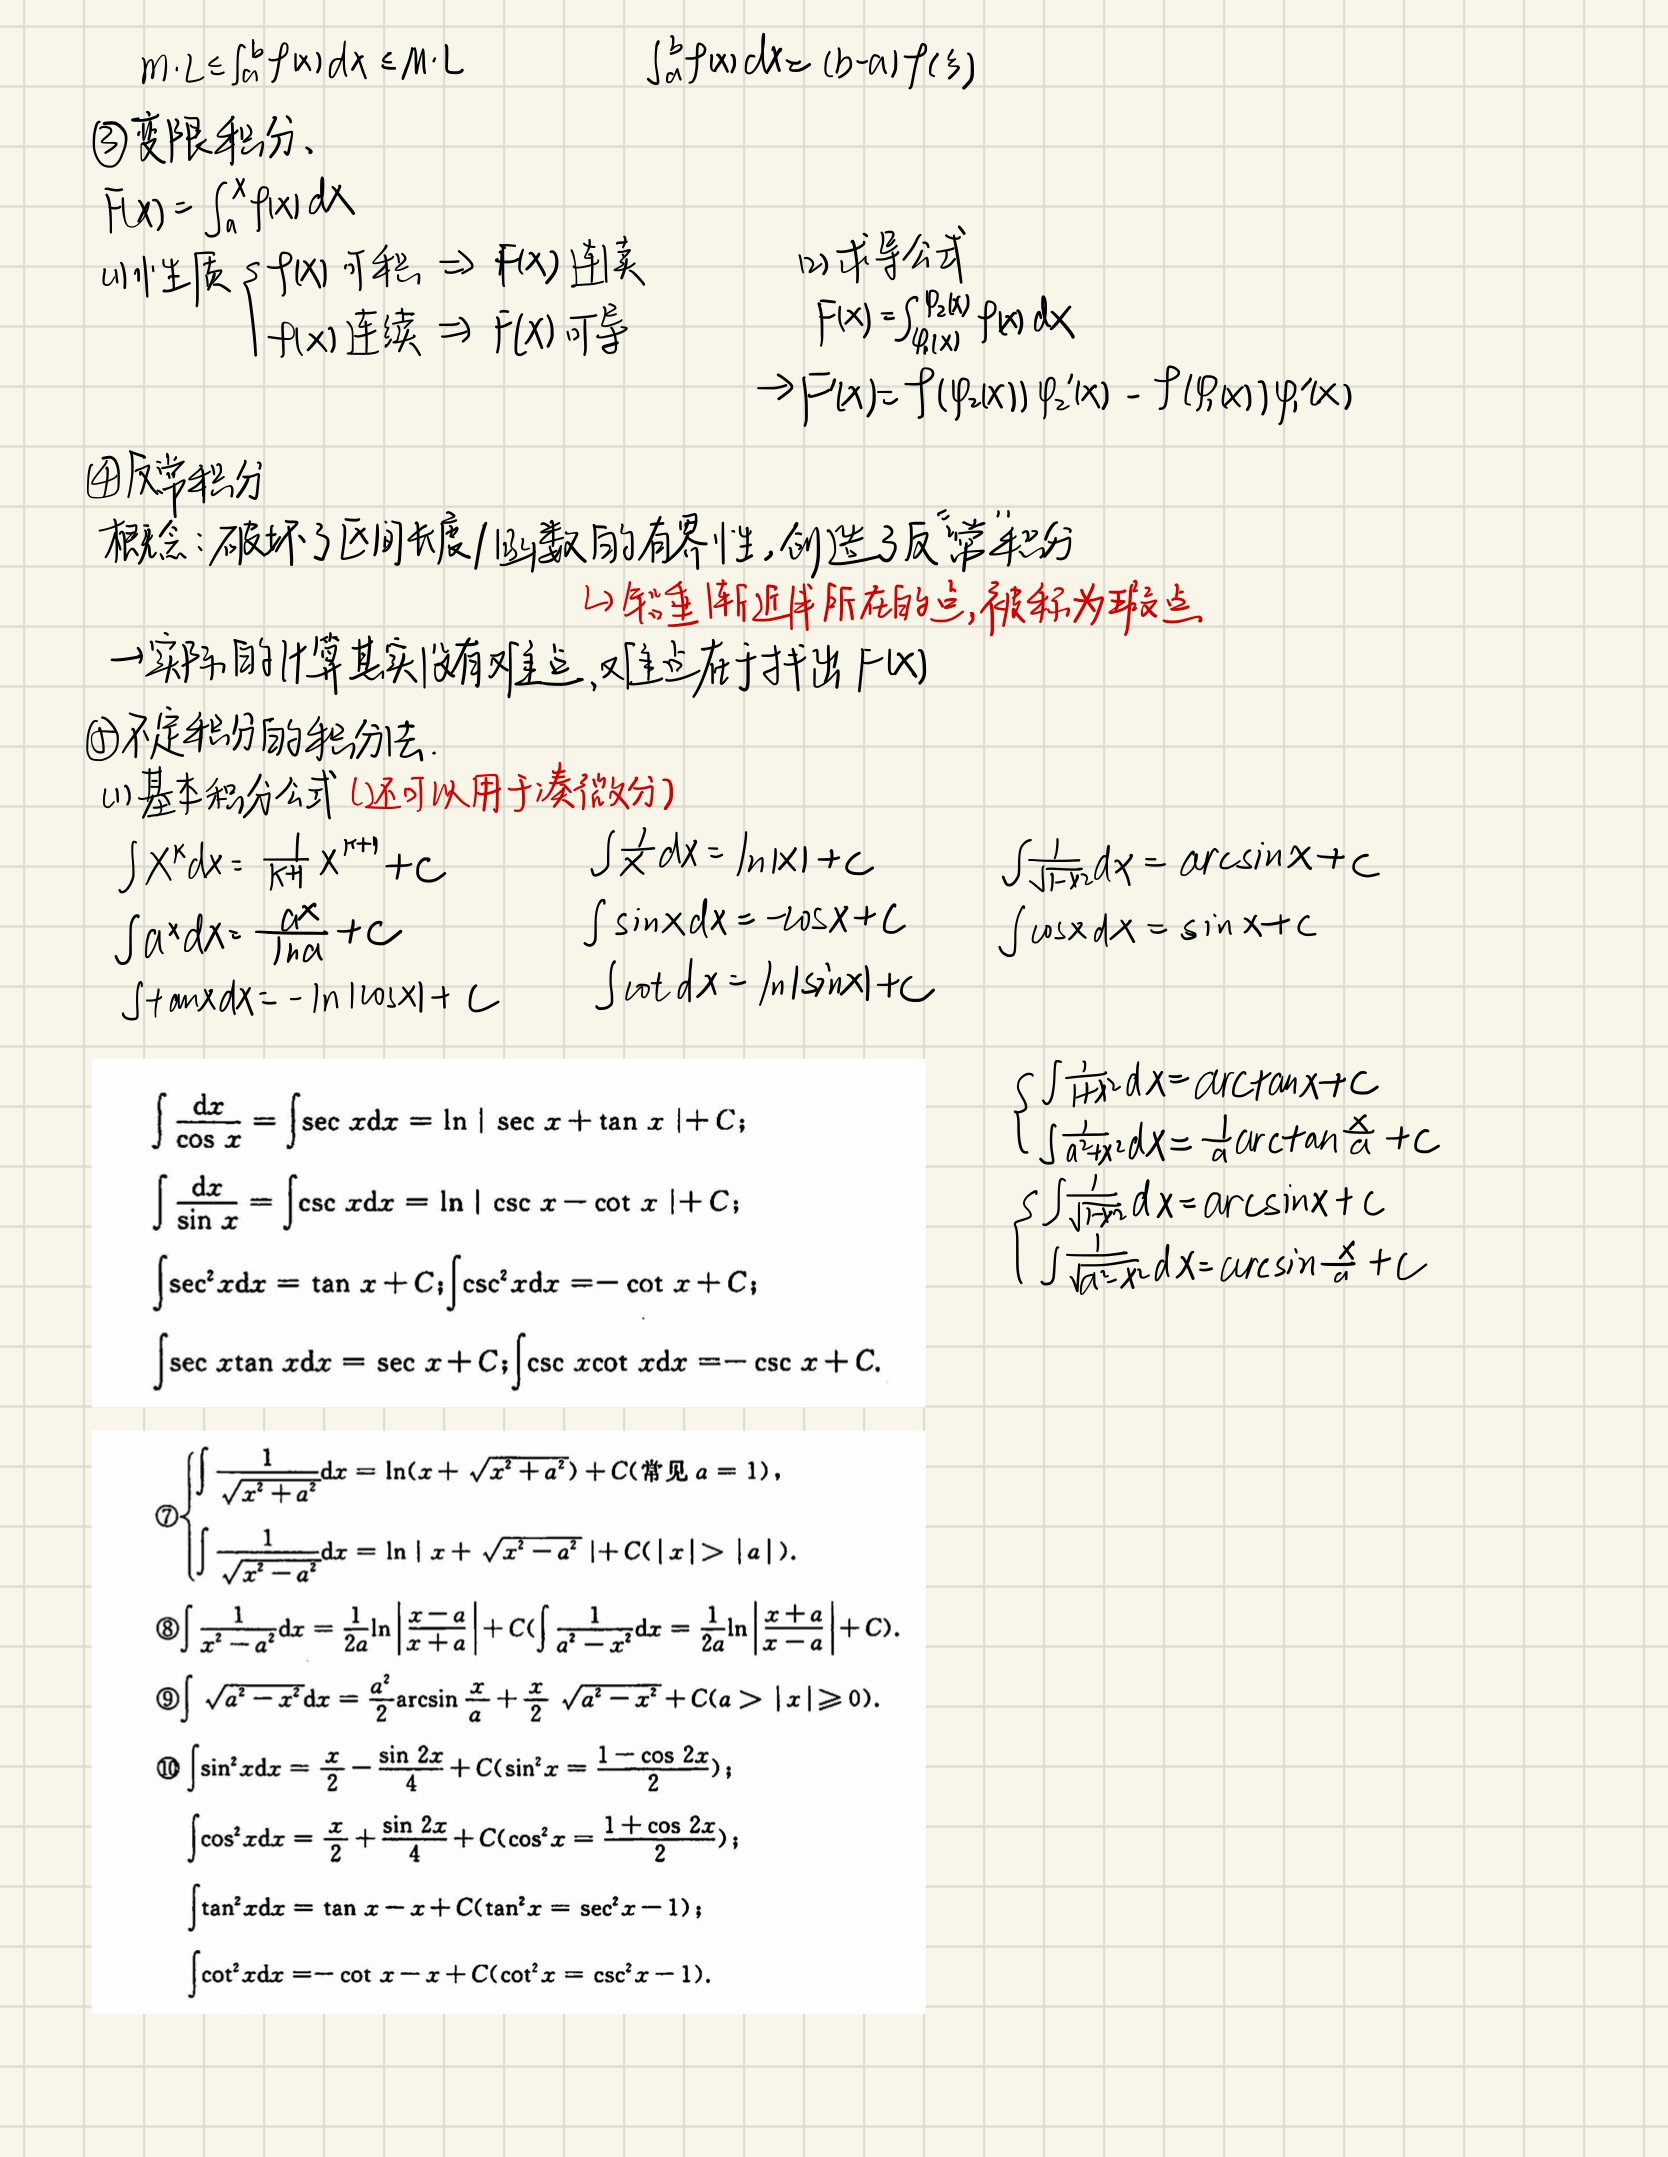 m·L≤∫ₐᵇf(x)dx≤M·L　　∫ₐᵇf(x)dx=(b-a)f(ξ)
③变限积分、
F(x)=∫ₐˣf(x)dx
(1)性质 { f(x)可积 ⇒ F(x)连续
f(x)连续 ⇒ F(x)可导
(2)求导公式
F(x)=∫_{φ₁(x)}^{φ₂(x)} f(x)dx
→F'(x)=f(φ₂(x))φ₂'(x)-f(φ₁(x))φ₁'(x)
④反常积分
概念:破坏了区间长度/函数的有界性,创造了反“常”积分
↳铅垂渐近线所在的点,被称为瑕点
→实际的计算其实没有难点,难点在于找出F(x)
⑤不定积分的积分法.
(1)基本积分公式(还可以用于凑微分)
∫xᵏdx=\frac{1}{k+1}x^{k+1}+C　　∫\frac{1}{x}dx=ln|x|+C　　∫\frac{1}{\sqrt{1-x²}}dx=arcsinx+C
∫aˣdx=\frac{aˣ}{lna}+C　　∫sinxdx=-cosx+C　　∫cosxdx=sinx+C
∫tanxdx=-ln|cosx|+C　　∫cotdx=ln|sinx|+C
∫\frac{dx}{cos x}=∫sec xdx=ln|sec x+tan x|+C;
∫\frac{dx}{sin x}=∫csc xdx=ln|csc x-cot x|+C;
∫sec²xdx=tan x+C;∫csc²xdx=-cot x+C;
∫sec xtan xdx=sec x+C;∫csc xcot xdx=-csc x+C.
{∫\frac{1}{1+x²}dx=arctanx+C
∫\frac{1}{a²+x²}dx=\frac{1}{a}arctan\frac{x}{a}+C
{∫\frac{1}{\sqrt{1-x²}}dx=arcsinx+C
∫\frac{1}{\sqrt{a²-x²}}dx=arcsin\frac{x}{a}+C
⑦{∫\frac{1}{\sqrt{x²+a²}}dx=ln(x+\sqrt{x²+a²})+C(常见a=1),
∫\frac{1}{\sqrt{x²-a²}}dx=ln|x+\sqrt{x²-a²}|+C(|x|>|a|).
⑧∫\frac{1}{x²-a²}dx=\frac{1}{2a}ln|\frac{x-a}{x+a}|+C(∫\frac{1}{a²-x²}dx=\frac{1}{2a}ln|\frac{x+a}{x-a}|+C).
⑨∫\sqrt{a²-x²}dx=\frac{a²}{2}arcsin\frac{x}{a}+\frac{x}{2}\sqrt{a²-x²}+C(a>|x|≥0).
⑩∫sin²xdx=\frac{x}{2}-\frac{sin 2x}{4}+C(sin²x=\frac{1-cos 2x}{2});
∫cos²xdx=\frac{x}{2}+\frac{sin 2x}{4}+C(cos²x=\frac{1+cos 2x}{2});
∫tan²xdx=tan x-x+C(tan²x=sec²x-1);
∫cot²xdx=-cot x-x+C(cot²x=csc²x-1).